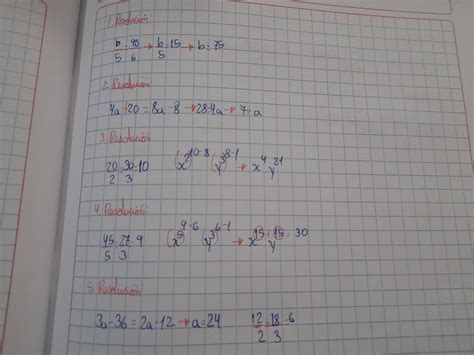 1. Resolución
b/5 = 90/6 → b/5 = 15 → b = 75
2. Resolución
4a + 20 = 8a - 8 → 28 = 4a → 7 = a
3. Resolución
20/2 = 30/3 = 10 (x²)¹⁰⁻⁸ (y³)⁸⁻¹ → x⁴ y²¹
4. Resolución:
45/5 = 27/3 = 9 (x⁵)⁹⁻⁶ (y³)⁶⁻¹ → x¹⁵ y¹⁵ = 30
5. Resolución:
3a - 36 = 2a - 12 → a = 24 12/2 = 18/3 = 6